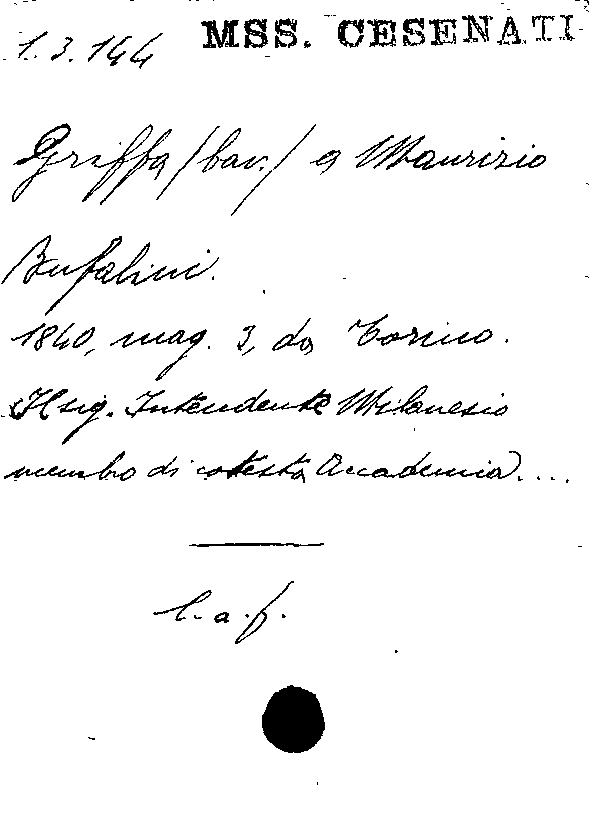 1.3.144 MSS. CESENATI
Griffa /Cav./ a Maurizio
Bufalini.
1840, mag. 3, da Torino.
Il sig. Intendente Milanesio
membro di cotesta Accademia....
l.a.f.